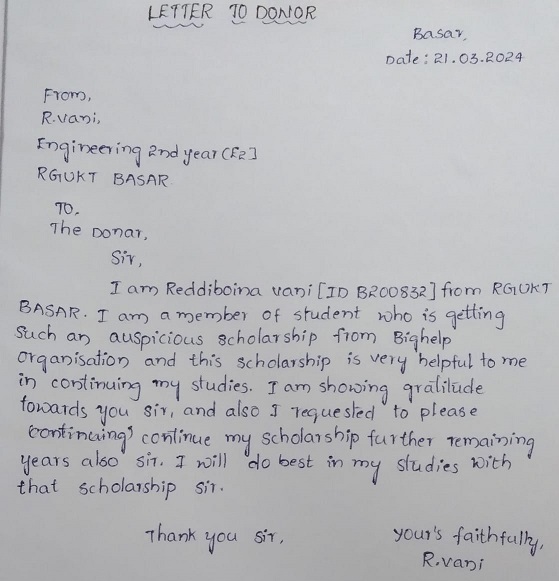 LETTER TO DONOR
Basar,
Date: 21.03.2024
From,
R.vani,
Engineering 2nd year (E2]
RGUKT BASAR
TO,
The Donar,
Sir,
I am Reddiboina vani [ID B200832] from RGUKT
BASAR. I am a member of student who is getting
such an auspicious scholarship from Bighelp
organisation and this scholarship is very helpful to me
in continuing my studies. I am showing gratitude
towards you sir, and also I requested to please
"continuing" continue my scholarship further remaining
years also sir. I will do best in my studies with
that scholarship sir.
Thank you sir,
your's faithfully,
R.vani